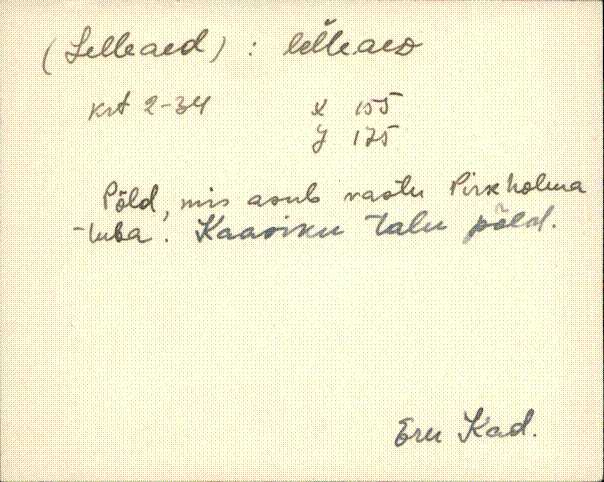 (Lelleaed) : lelleaed
krt 2-34 X 155
Y 175
Põld, mis asub vastu Pirkholma
-tuba. Kaasiku talu põld.
Eru Kad.